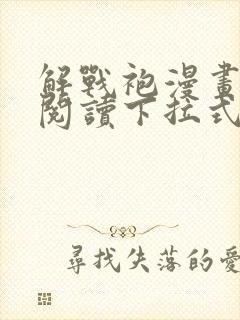 解戰袍漫畫
閱讀下拉式
尋找失落的愛